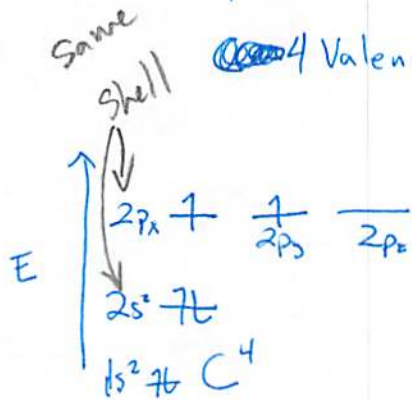 Same
Shell
4 Valen
E
2px 1 1 2py 2pz
2s² 1L
1s² 1L C⁴